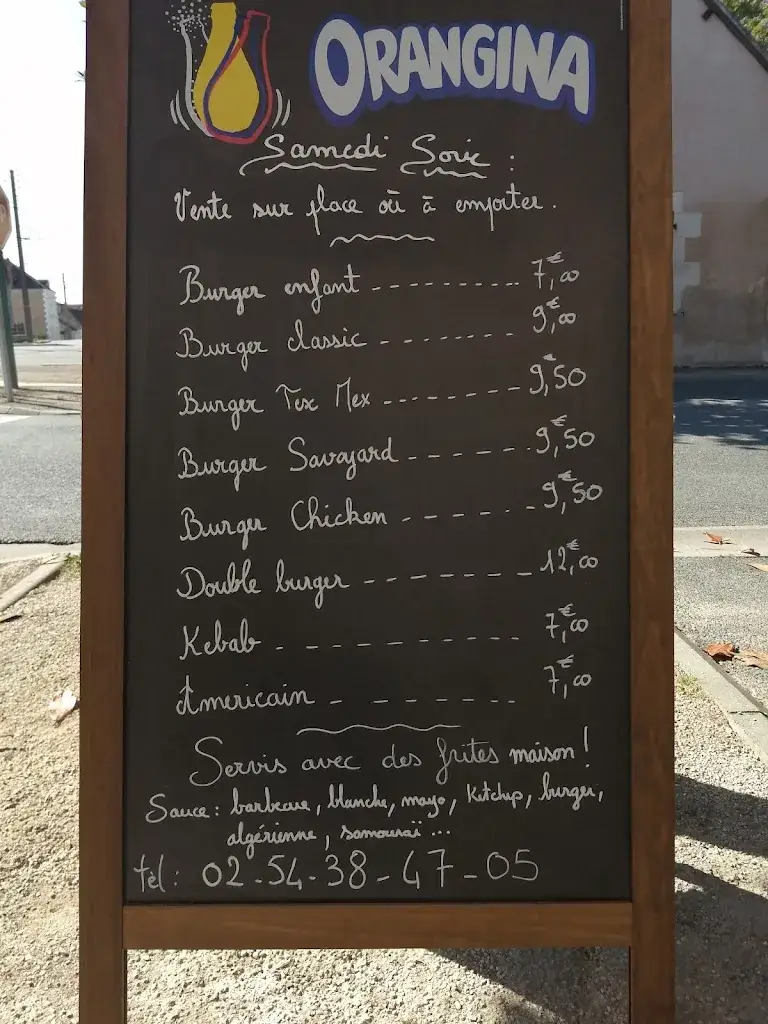 ORANGINA
Samedi Soir :
Vente sur place où à emporter.
Burger enfant --------- 7,00€
Burger classic -------- 9,00€
Burger Tex Mex ------- 9,50€
Burger Savoyard ------ 9,50€
Burger Chicken ------ 9,50€
Double burger ------- 12,00€
Kebab ---------- 7,00€
Americain ------- 7,00€
Servis avec des frites maison !
Sauce : barbecue, blanche, mayo, Ketchup, burger,
algérienne, samouraï ...
tél : 02-54-38-47-05